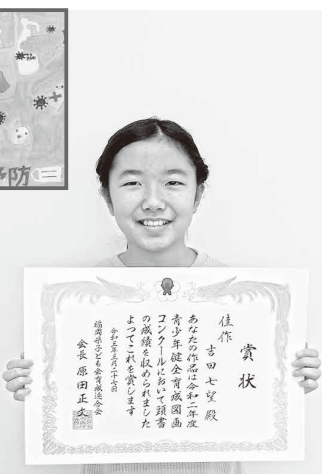 予防
賞状
佳作
吉田七望殿
あなたの作品は令和二年度
青少年健全育成図画
コンクールにおいて頭書
の成績を収められました
よってこれを賞します
令和三年三月二十七日
福岡県子ども会育成連合会
会長 原田正文